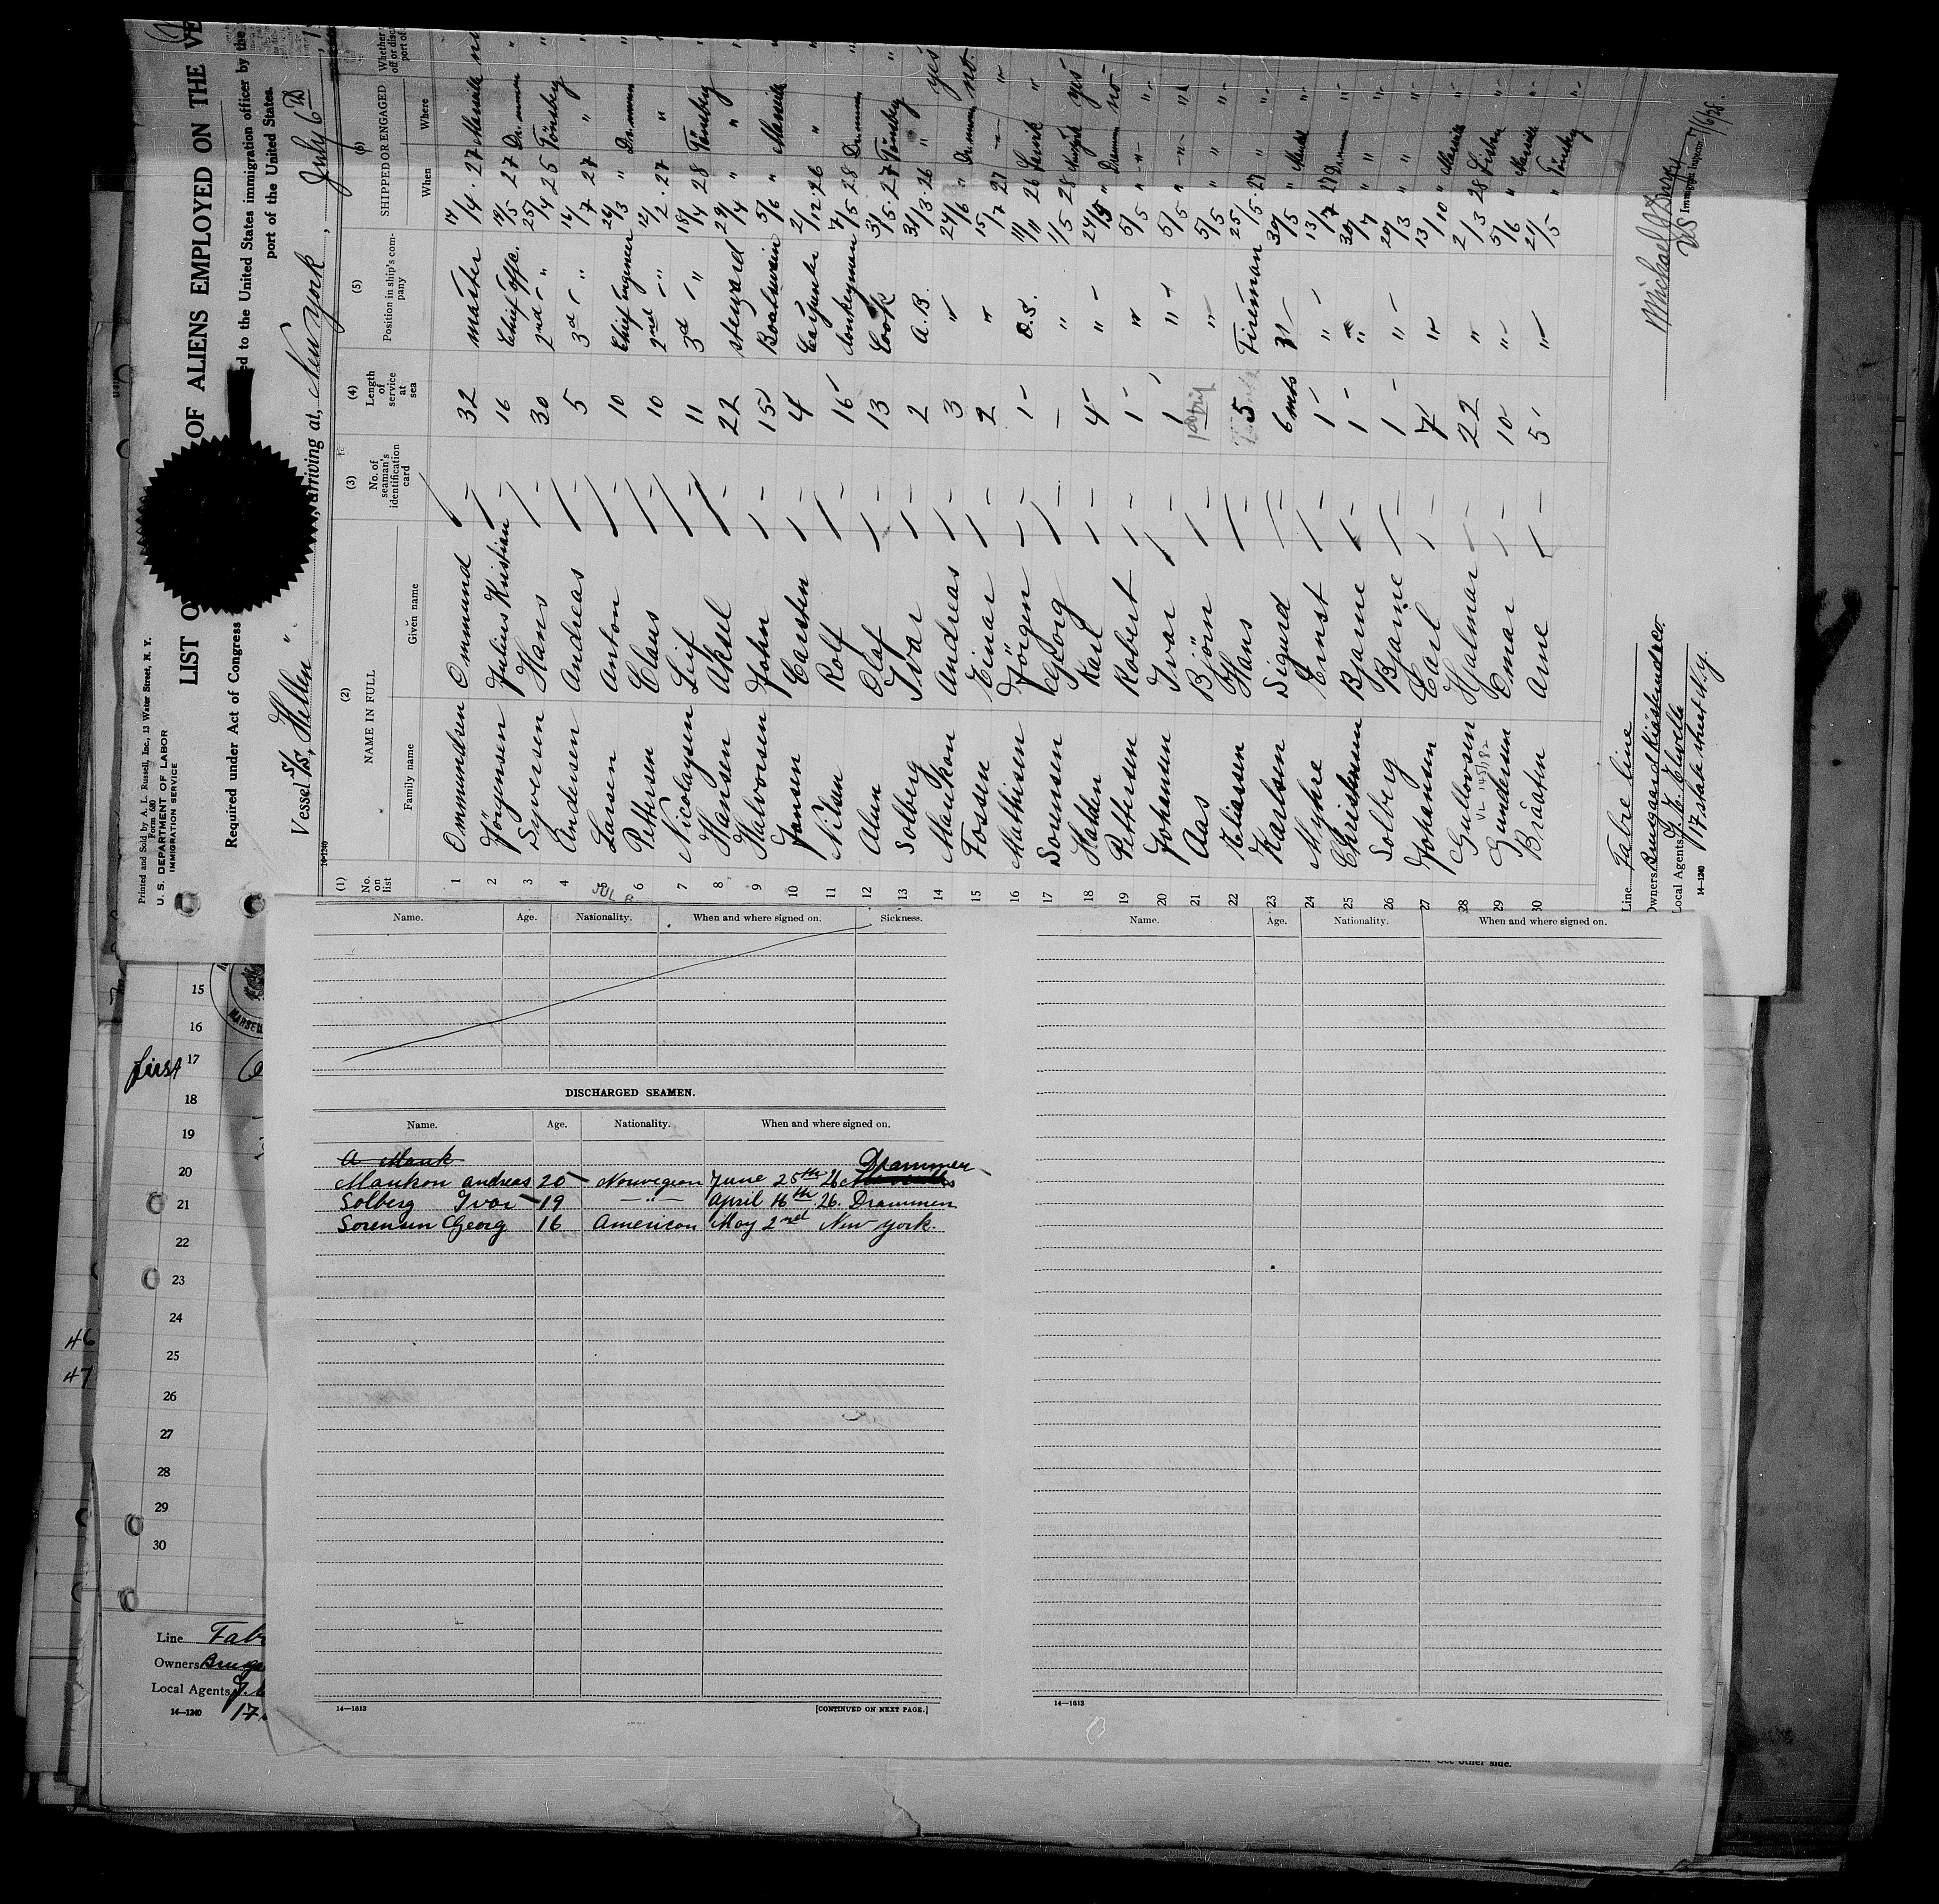 Printed and Sold by A. L. Russell, Inc., 13 Water Street, N. Y.
Form 680
U. S. DEPARTMENT OF LABOR
IMMIGRATION SERVICE
LIST OF ALIENS EMPLOYED ON THE VE
Required under Act of Congress
ed to the United States immigration officer by the
port of the United States.
Vessel S/S, "Hellen", arriving at, New York, July 6th, 1
14-1240
(1) (2) (3) (4) (5) (6)
No. on list
NAME IN FULL
Family name Given name
No. of seaman's identification card
Length of service at sea
Position in ship's company
SHIPPED OR ENGAGED
When Where
1 Ommundsen Ommund — 32 master 14/4 27 Marseille
2 Jörgensen Julius Kristian — 16 Chief offc. 14/5 27 Drammen
3 Syversen Hans — 30 2nd " 25/4 25 Tönsberg
4 Andersen Andreas — 5 3d " 14/7 27 "
5 Larsen Anton — 10 Chief Engineer 24/3 " Drammen
6 Pettersen Claus — 10 2nd " 12/2 27 "
7 Nicolaysen Leif — 11 3d " 18/4 28 Tönsberg
8 Hansen Aksel — 22 Steward 24/4 " "
9 Halvorsen John — 15 Boatswain 5/6 " Marseille
10 Jansen Carsten — 4 Carpenter 2/12 26 "
11 Nilsen Rolf — 16 donkeyman 7/5 28 Drammen
12 Olaf — 13 Cook 31/5 27 Tönsberg
13 Solberg Ivar — 2 A.B. 31/3 26 " yes
14 Maukon Andreas — 3 " 24/6 " Drammen no
15 Fossen Einar — 2 " 15/7 27 "
16 Mathisen Jörgen — 1 O.S. 11/11 26 "
17 Sorensen Georg — " 1/5 28 New York yes
18 Karl — 4 " 24/5 " Drammen no
19 Pettersen Robert — 1 " 5/5 " "
20 Johansen Ivar — 1 " 5/5 " "
21 Aas Björn — 1st trip " 5/5 " "
22 Eliassen Hans — 5 Fireman 25/5 27 "
23 Karlsen Sigurd — 6 mos 30/5 "
24 Myhre Ernst — 1 " 13/7 27
25 Christensen Bjarne — 1 " 30/7 " "
26 Solberg Bjarne — 1 " 20/3 " "
27 Johansen Carl — 7 " 13/10 " Marseille
28 Gullovsen Hjalmar — 22 " 2/3 28 Lisbon
29 Gundersen Omar — 10 " 5/6 " Marseille
30 Bråaten Arne — 5 " 21/5 " Tönsberg
Line Fabre line
Local Agents
17 state street N.Y.
14-1240
Immigrant Inspector
7/6/28.
15
16
first 17
18
19
20
21
22
23
24
25
26
27
28
29
30
46
47
Line Fab
Owners
Local Agents
14-1240
17
Name. Age. Nationality. When and where signed on. Sickness.
DISCHARGED SEAMEN.
Name. Age. Nationality. When and where signed on.
A Mauk
Drammen
Maukon andreas 20 Norwegion June 25th 26
Solberg Ivar 19 —"— April 16th 26. Drammen
Sorensen Georg 16 American May 2nd New York.
14—1613
[CONTINUED ON NEXT PAGE.]
Name. Age. Nationality. When and where signed on.
14—1613
See other side.